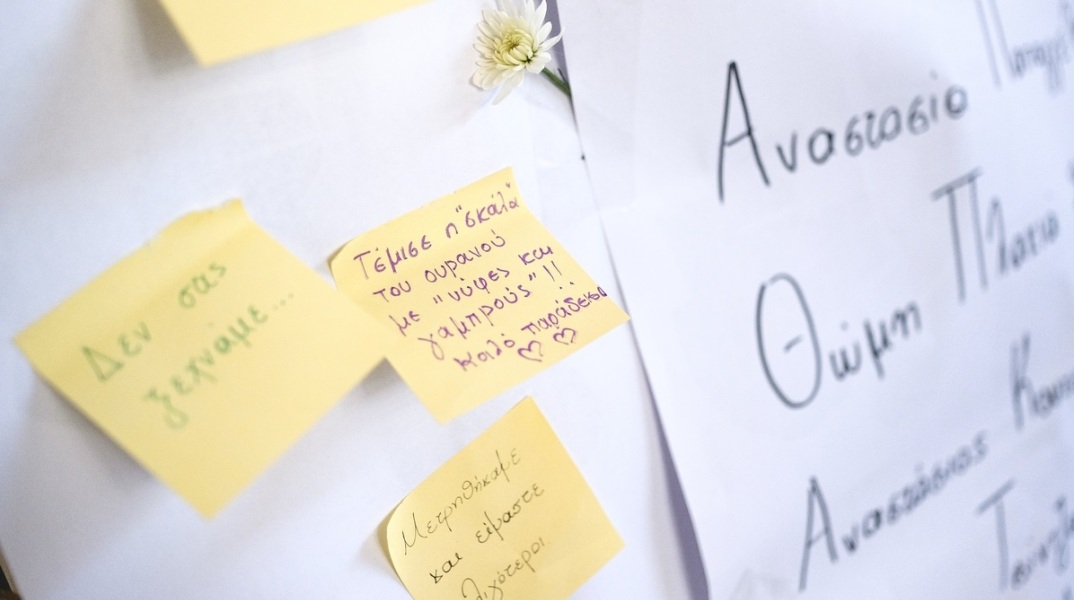 Δεν σας
ξεχνάμε...
Γέμισε η "σκάλα"
του ουρανού
με "νύφες και
γαμπρούς"!!
καλό παράδεισο
♡ ♡
Μετρηθήκαμε
και είμαστε
λιγότεροι.
Αναστασία
Θώμη
Αναστάσιος